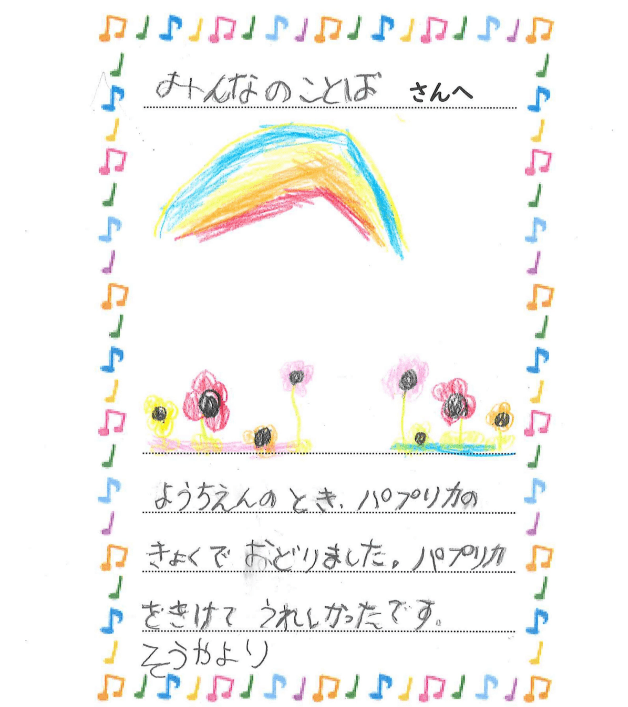 みんなのことば さんへ
ようちえんのとき、パプリカの
きょくでおどりました。パプリカ
をきけてうれしかったです。
そうやより